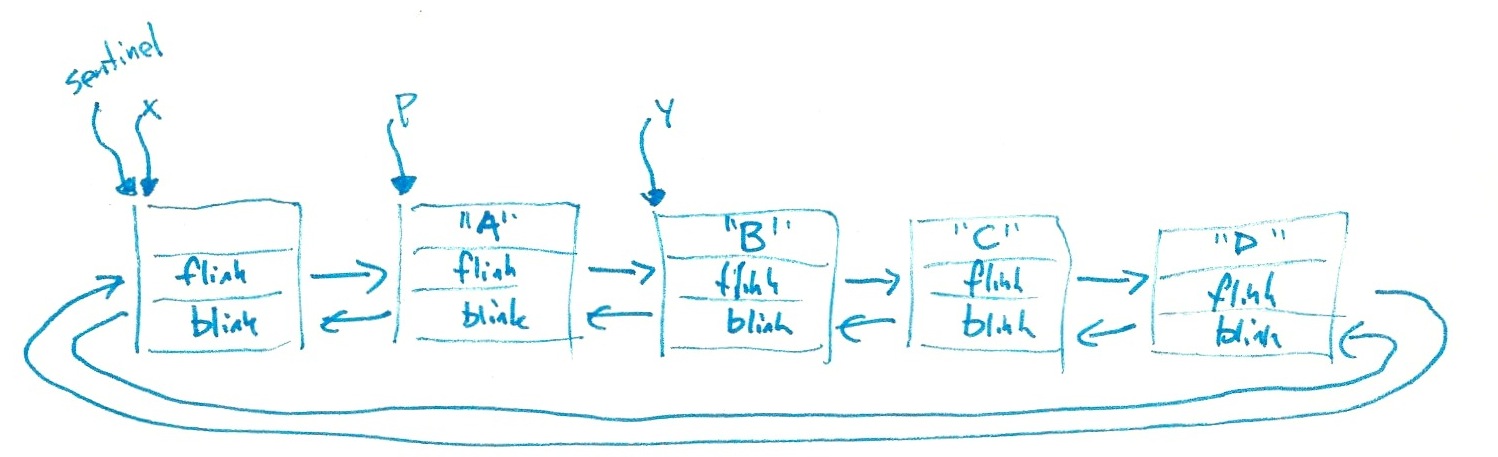 sentinel
X
P
Y
"A"
"B"
"C"
"D"
flink
flink
flink
flink
flink
blink
blink
blink
blink
blink